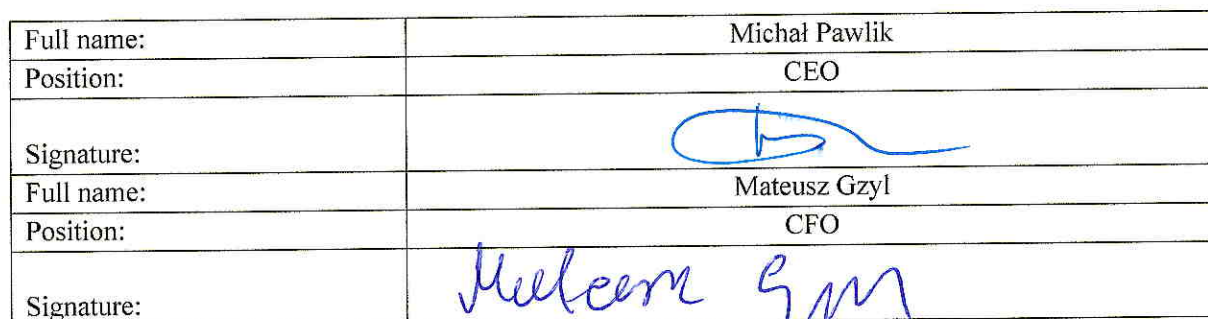 Full name: Michał Pawlik
Position: CEO
Signature:
Full name: Mateusz Gzyl
Position: CFO
Signature: Mateusz Gzyl